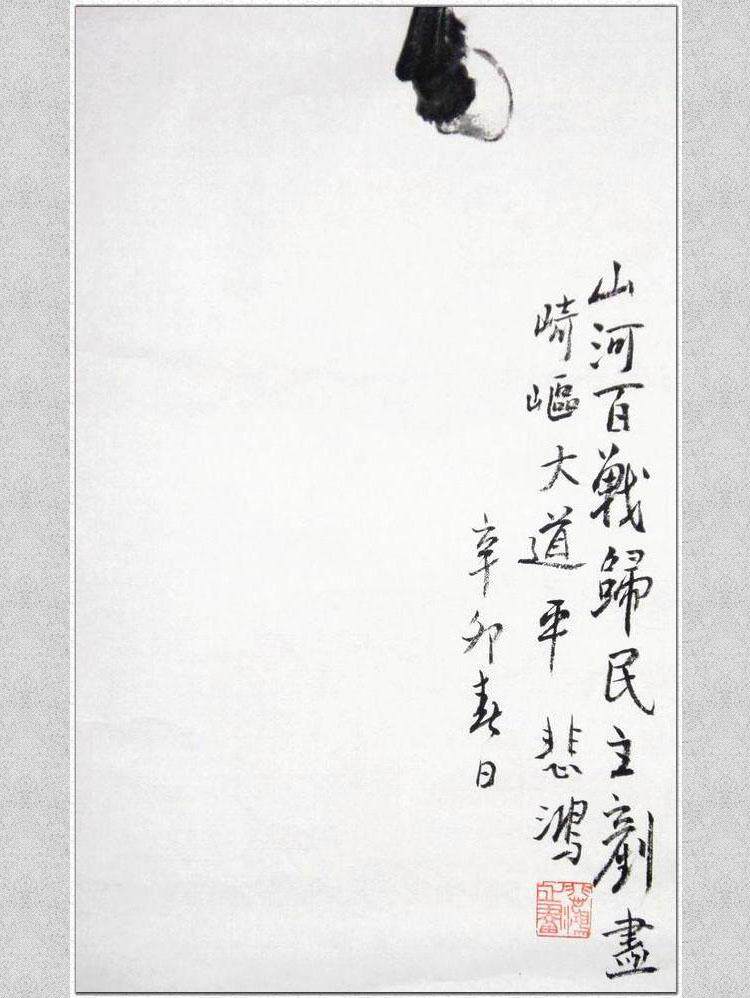 山河百戰歸民主剷盡
崎嶇大道平 悲鴻
辛卯春日
悲鴻